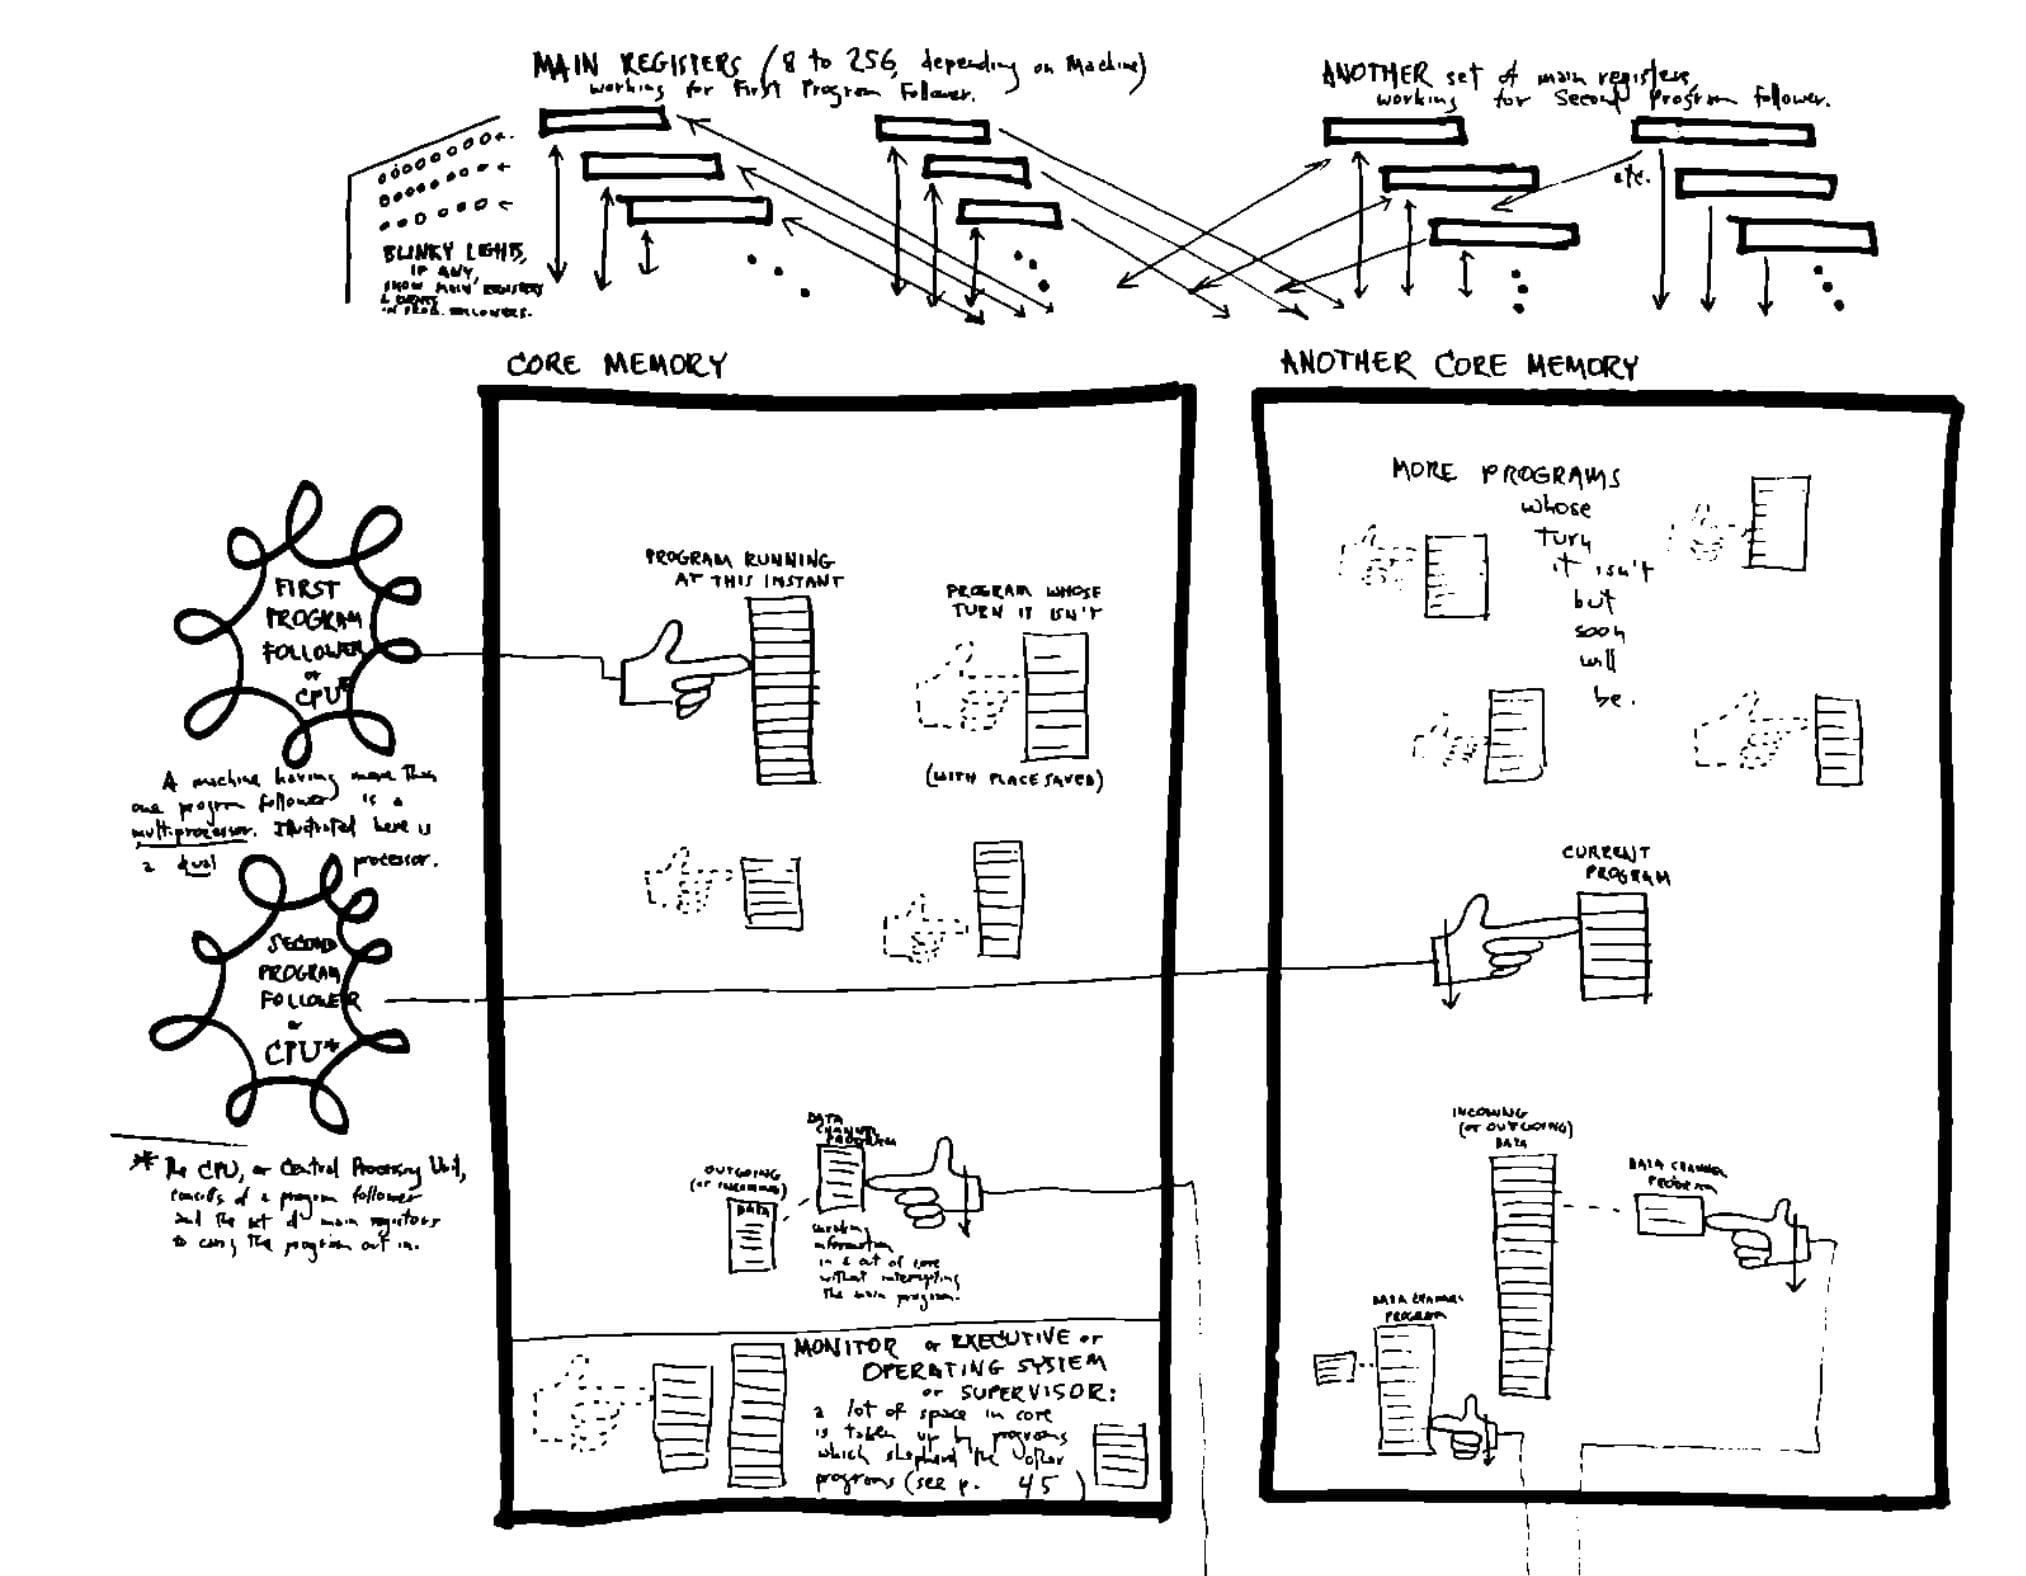 MAIN REGISTERS (8 to 256, depending on Machine)
working for First Program Follower.
ANOTHER set of main registers,
working for Second Program Follower.
etc.
BLINKY LIGHTS,
IF ANY,
SHOW MAIN REGISTERS
& EVENTS
IN PROG. FOLLOWERS.
CORE MEMORY
ANOTHER CORE MEMORY
FIRST
PROGRAM
FOLLOWER
or
CPU*
A machine having more than
one program follower is a
multiprocessor. Illustrated here is
a dual processor.
SECOND
PROGRAM
FOLLOWER
or
CPU*
* The CPU, or Central Processing Unit,
consists of a program follower
and the set of main registers
to carry the program out in.
PROGRAM RUNNING
AT THIS INSTANT
PROGRAM WHOSE
TURN IT ISN'T
(WITH PLACE SAVED)
MORE PROGRAMS
whose
turn
it isn't
but
soon
will
be.
CURRENT
PROGRAM
DATA
CHANNEL
PROGRAM
OUTGOING
(or INCOMING)
DATA
information
in & out of core
without interrupting
the main program.
MONITOR or EXECUTIVE or
OPERATING SYSTEM
or SUPERVISOR:
a lot of space in core
is taken up by programs
which shepherd the other
programs (see p. 45 )
INCOMING
(or OUTGOING)
DATA
DATA CHANNEL
PROGRAM
DATA CHANNEL
PROGRAM